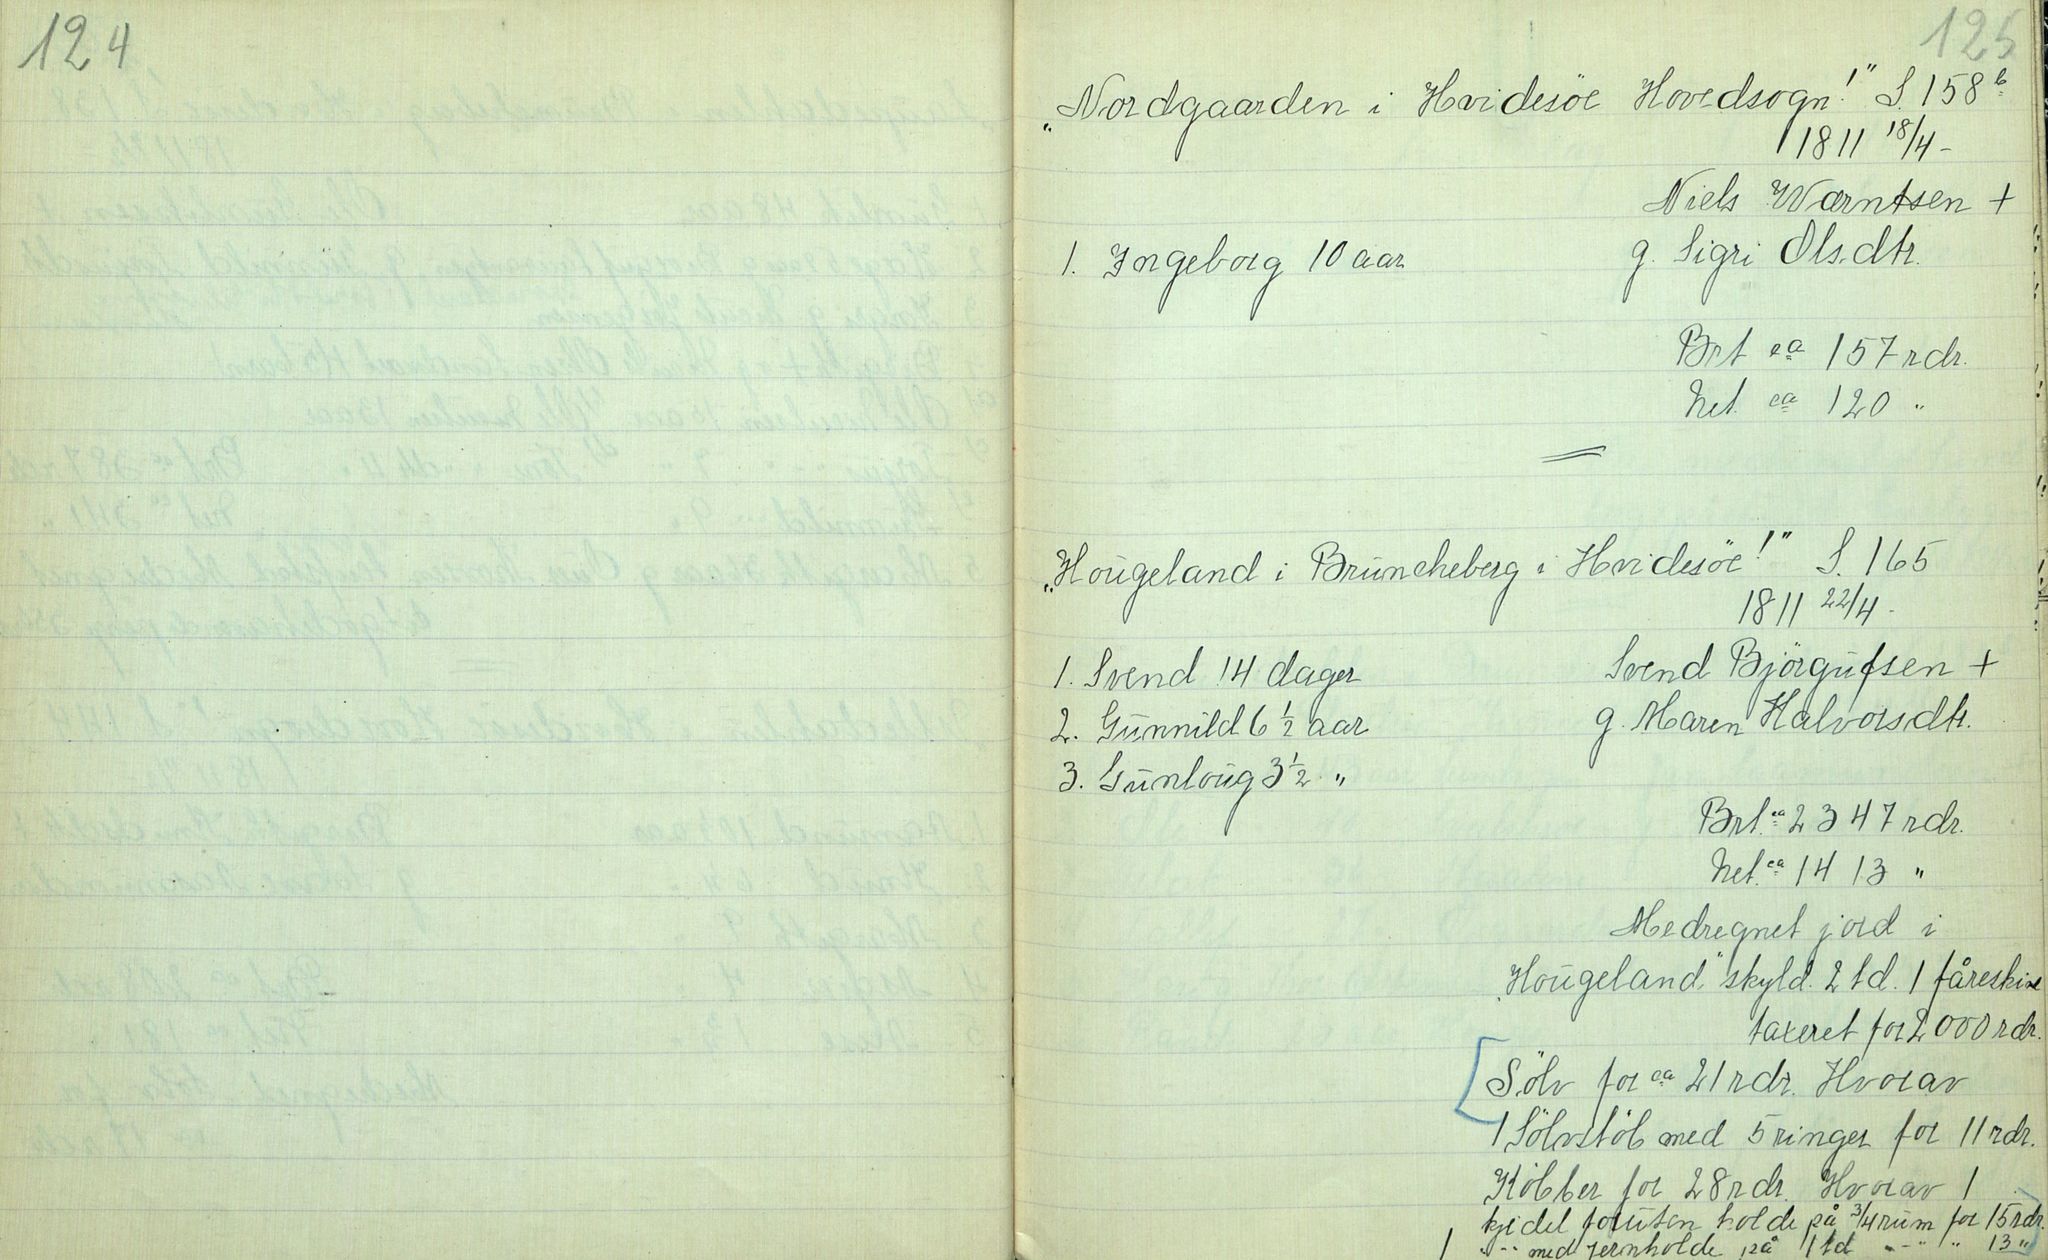 124
125
„Nordgaarden i Hvidesöe Hovedsogn!" S. 158 b
1811 18/4 -
Niels Wærntsen +
1. Ingeborg 10 aar
g. Sigri Olsdtr.
Brt ca 157 rdr.
Net. ca 120 "
„Hoŭgeland i Brŭncheberg i Hvidesöe!" S. 165
1811 22/4 -
1. Svend 14 dager
Svend Björgŭfsen +
2. Gŭnnild 6 1/2 aar
g. Maren Halvorsdtr.
3. Gŭnloŭg 3 1/2 "
Brt. ca 2347 rdr.
Net. ca 1413 "
Medregnet jord i
„Hoŭgeland" skyld. 2 td. 1 fåreskin
taxeret for 2000 rdr.
Sölv for ca 21 rdr. Hvorav
1 Sölvstöb med 5 ringer for 11 rdr.
Kobber for 28 rdr. Hvorav 1
kjedel forŭten holde på 3/4 rŭm for 15 rdr.
1 "-" med jernholde på 1 td "-" " 13 "